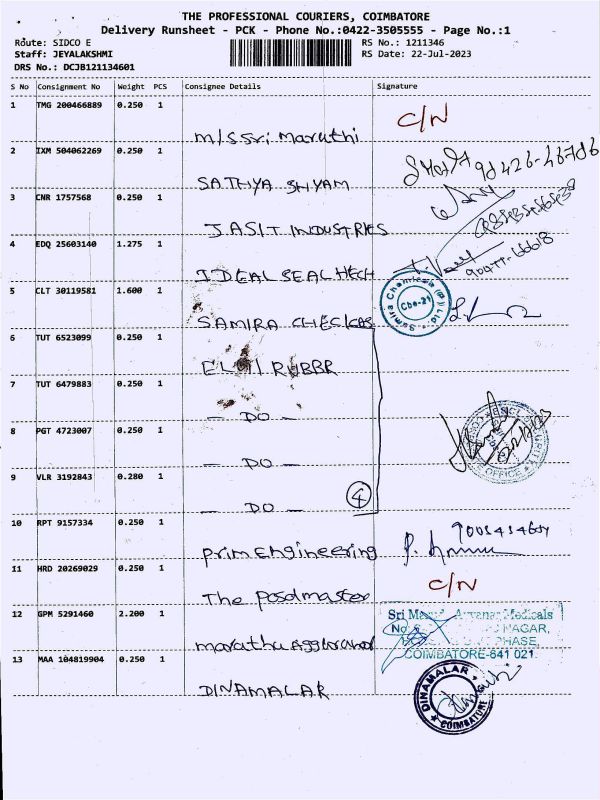 THE PROFESSIONAL COURIERS, COIMBATORE
Delivery Runsheet - PCK - Phone No.:0422-3505555 - Page No.:1
Route: SIDCO E
RS No.: 1211346
Staff: JEYALAKSHMI
RS Date: 22-Jul-2023
DRS No.: DCJB121134601
S No Consignment No Weight PCS Consignee Details Signature
1 TMG 200466889 0.250 1
C/N
M/S Sri Maruthi
2 IXM 504062269 0.250 1
SATHYA SHYAM
3 CNR 1757568 0.250 1
JASIT INDUSTRIES
4 EDQ 25603140 1.275 1
IDEAL SEAL
5 CLT 30119581 1.600 1
Samira Chemicals (P) Ltd.
Cbe-21
SAMIRA
6 TUT 6523099 0.250 1
RUBBR
7 TUT 6479883 0.250 1
- DO -
8 PGT 4723007 0.250 1
- DO -
9 VLR 3192843 0.280 1
4
- DO -
10 RPT 9157334 0.250 1
Prim Engineering
11 HRD 20269029 0.250 1
C/N
The Posdmaster
12 GPM 5291460 2.200 1
Sri Medicals
NAGAR,
PHASE,
COIMBATORE-641 021
13 MAA 104819904 0.250 1
DINAMALAR
DINAMALAR
COIMBATORE